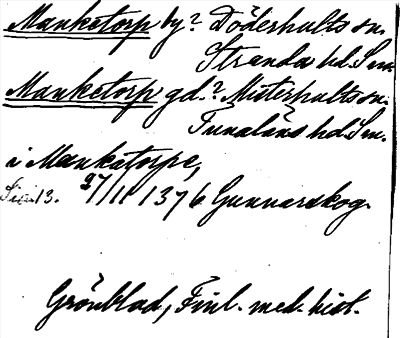 Manketorp by? Döderhults sn.
Stranda hd. Sm.
Manketorp gd.? Misterhults sn.
Tunaläns hd. Sm.
i Mankatorpe,
13. 27/11 1376 Gunnarskog.
Grönblad, Finl. med. hist.